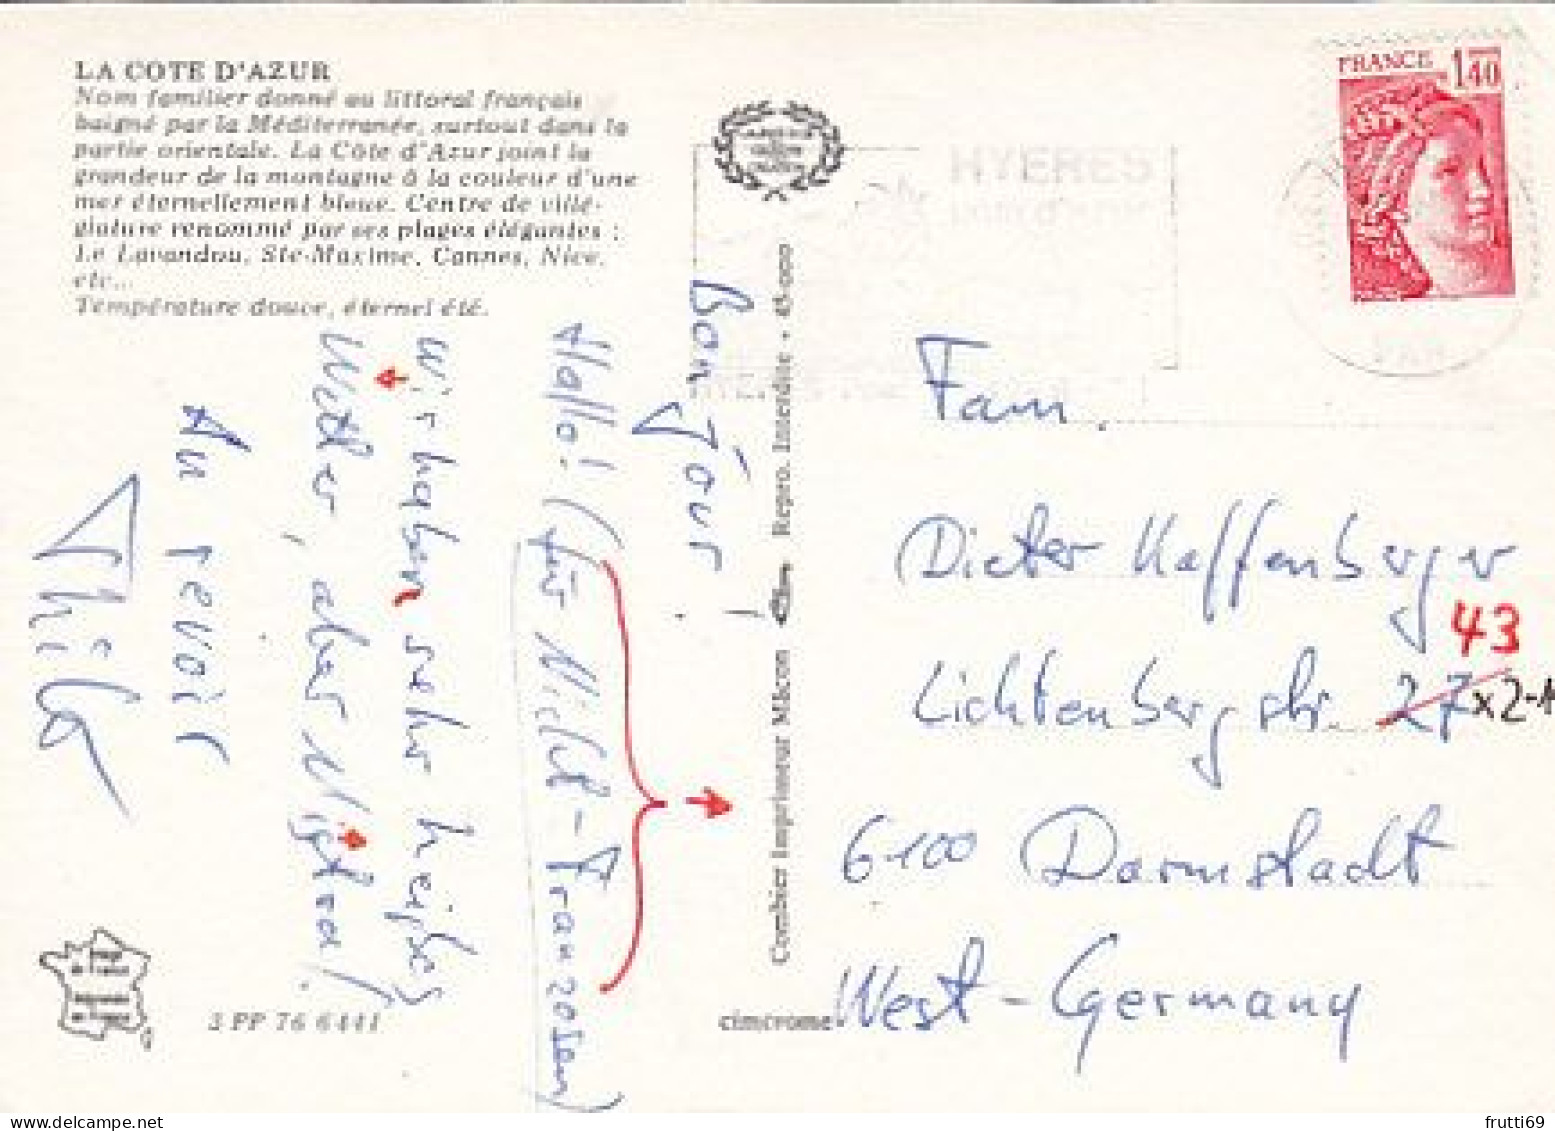 LA COTE D'AZUR
Nom familier donné au littoral français
baigné par la Méditerranée, surtout dans la
partie orientale. La Côte d'Azur joint la
grandeur de la montagne à la couleur d'une
mer éternellement bleue. Centre de villé-
giature renommé par ses plages élégantes :
Le Lavandou, Ste-Maxime, Cannes, Nice,
etc...
Température douce, éternel été.
Bon Jour!
Hallo! (für Nicht-Franzosen)
wir haben sehr heißes
Wetter, aber Mistral!
Au revoir
Thilo
3 PP 76 6441
Combier Imprimeur Mâcon
Repro. Interdite - 45-000
cimcrome
HYERES
VAR
FRANCE
1,40
Fam.
Dieter Haffenberger
43
Lichtenbergstr. 27 x2-1
6100 Darmstadt
West-Germany
frutti69